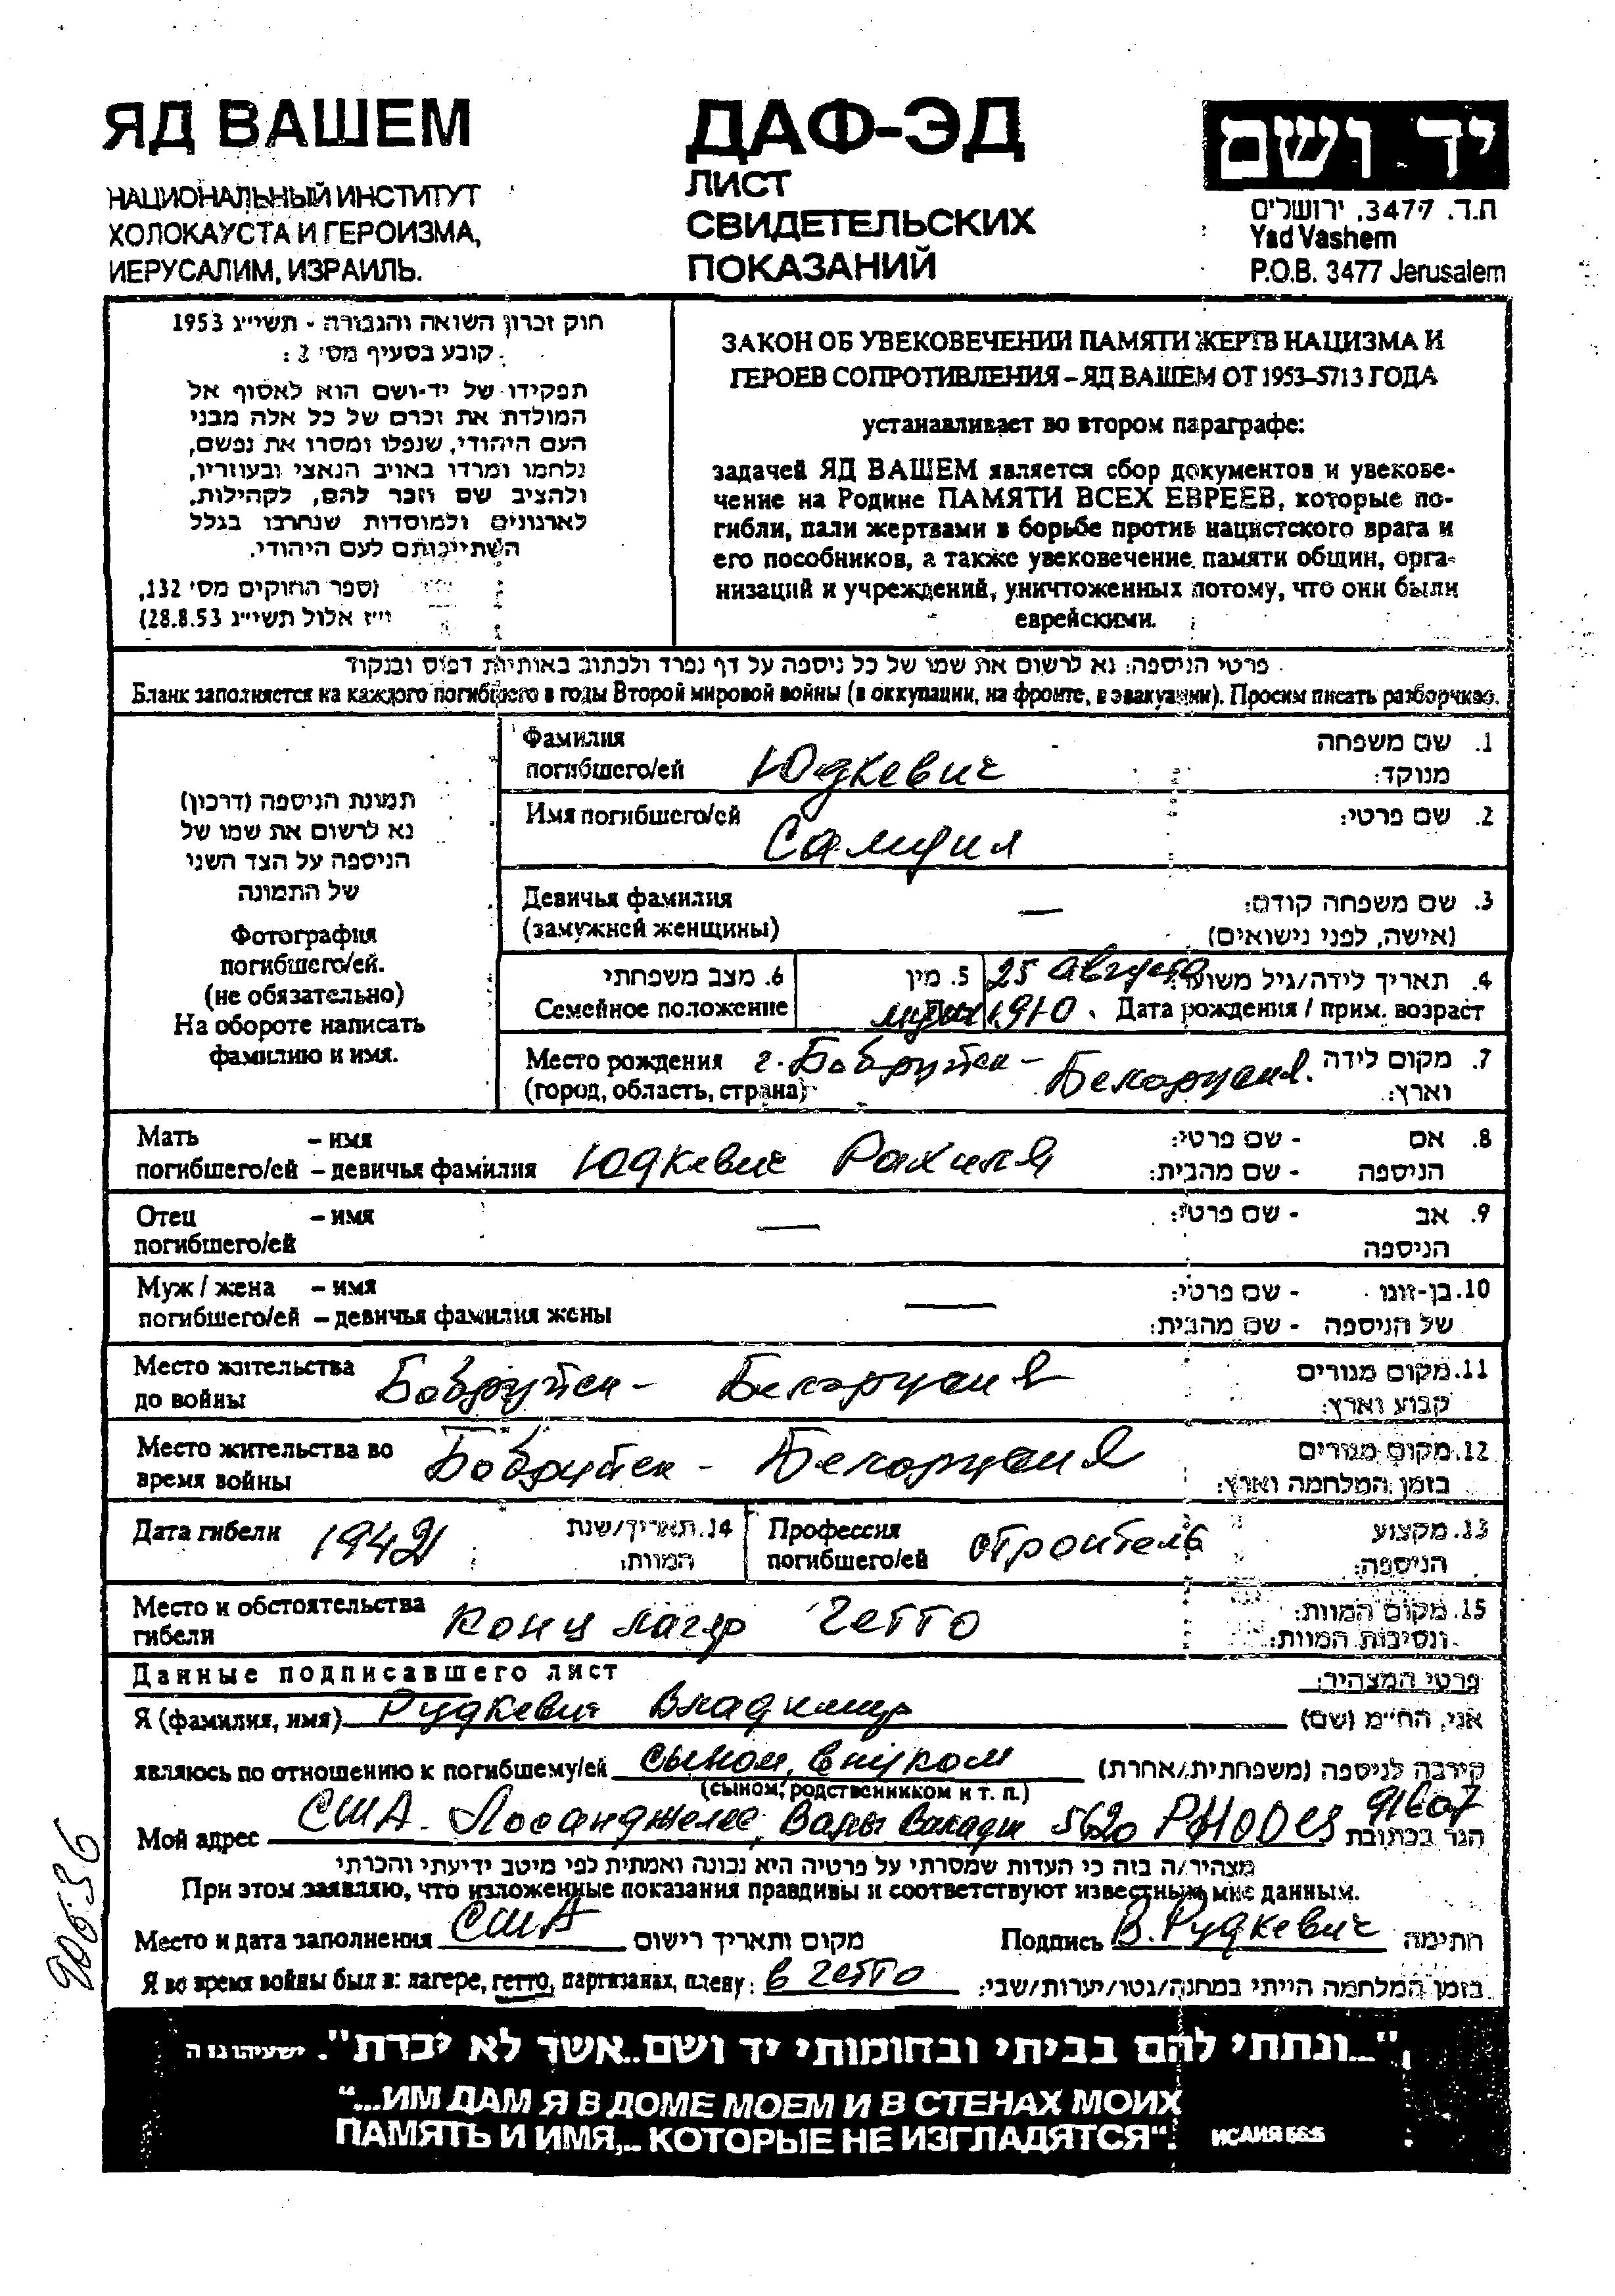 ЯД ВАШЕМ
НАЦИОНАЛЬНЫЙ ИНСТИТУТ
ХОЛОКАУСТА И ГЕРОИЗМА,
ИЕРУСАЛИМ, ИЗРАИЛЬ.
ДАФ-ЭД
ЛИСТ
СВИДЕТЕЛЬСКИХ
ПОКАЗАНИЙ
יד ושם
ת.ד. 3477, ירושלים
Yad Vashem
P.O.B. 3477 Jerusalem
חוק זכרון השואה והגבורה - תשי״ג 1953
קובע בסעיף מס׳ 2:
תפקידו של יד-ושם הוא לאסוף אל
המולדת את זכרם של כל אלה מבני
העם היהודי, שנפלו ומסרו את נפשם,
נלחמו ומרדו באויב הנאצי ובעוזריו,
ולהציב שם וזכר להם, לקהילות,
לארגונים ולמוסדות שנחרבו בגלל
השתייכותם לעם היהודי.
(ספר החוקים מס׳ 132,
י״ז אלול תשי״ג 28.8.53)
ЗАКОН ОБ УВЕКОВЕЧЕНИИ ПАМЯТИ ЖЕРТВ НАЦИЗМА И
ГЕРОЕВ СОПРОТИВЛЕНИЯ – ЯД ВАШЕМ ОТ 1953–5713 ГОДА
устанавливает во втором параграфе:
задачей ЯД ВАШЕМ является сбор документов и увекове-
чение на Родине ПАМЯТИ ВСЕХ ЕВРЕЕВ, которые по-
гибли, пали жертвами в борьбе против нацистского врага и
его пособников, а также увековечение памяти общин, орга-
низаций и учреждений, уничтоженных потому, что они были
еврейскими.
פרטי הניספה: נא לרשום את שמו של כל ניספה על דף נפרד ולכתוב באותיות דפוס ובנקוד
Бланк заполняется на каждого погибшего в годы Второй мировой войны (в оккупации, на фронте, в эвакуации). Просим писать разборчиво.
תמונת הניספה (דרכון)
נא לרשום את שמו של
הניספה על הצד השני
של התמונה
Фотография
погибшего/ей.
(не обязательно)
На обороте написать
фамилию и имя.
Фамилия 1. שם משפחה
погибшего/ей Юдкевич מנוקד:
Имя погибшего/ей 2. שם פרטי:
Самуил
Девичья фамилия — 3. שם משפחה קודם:
(замужней женщины) (אישה, לפני נישואים)
6. מצב משפחתי 5. מין 25 августа 4. תאריך לידה/גיל משוער:
Семейное положение 1910. Дата рождения / прим. возраст
Место рождения г. Бобруйск – Белоруссия. 7. מקום לידה
(город, область, страна) וארץ:
Мать – имя - שם פרטי: 8. אם
погибшего/ей – девичья фамилия Юдкевич Рахиля - שם מהבית: הניספה
Отец – имя — - שם פרטי: 9. אב
погибшего/ей הניספה
Муж / жена – имя — - שם פרטי: 10. בן-זוגו
погибшего/ей – девичья фамилия жены - שם מהבית: של הניספה
Место жительства Бобруйск – Белоруссия 11. מקום מגורים
до войны קבוע וארץ:
Место жительства во Бобруйск – Белоруссия 12. מקום מגורים
время войны בזמן המלחמה וארץ:
Дата гибели 14. תאריך/שנת Профессия строитель 13. מקצוע
המוות: погибшего/ей הניספה:
Место и обстоятельства конц лагер гетто 15. מקום המוות:
гибели ונסיבות המוות:
Данные подписавшего лист פרטי המצהיר:
Я (фамилия, имя) Рудкевич Владимир אני, הח״מ (שם)
являюсь по отношению к погибшему/ей сыном, внуком קירבה לניספה (משפחתית/אחרת)
(сыном, родственником и т. п.)
Мой адрес США. Лосанджелес, 5620 RHODES 91607 הגר בכתובת
מצהיר/ה בזה כי העדות שמסרתי על פרטיה היא נכונה ואמתית לפי מיטב ידיעתי והכרתי
При этом заявляю, что изложенные показания правдивы и соответствуют известным мне данным.
Место и дата заполнения США מקום ותאריך רישום Подпись В. Рудкевич חתימה
Я во время войны был в: лагере, гетто, партизанах, плену: в гетто בזמן המלחמה הייתי במחנה/גטו/יערות/שבי:
90636
"...ונתתי להם בביתי ובחומותי יד ושם..אשר לא יכרת". ישעיהו נו ה
“...ИМ ДАМ Я В ДОМЕ МОЕМ И В СТЕНАХ МОИХ
ПАМЯТЬ И ИМЯ,.. КОТОРЫЕ НЕ ИЗГЛАДЯТСЯ“. ИСАИЯ 56:5